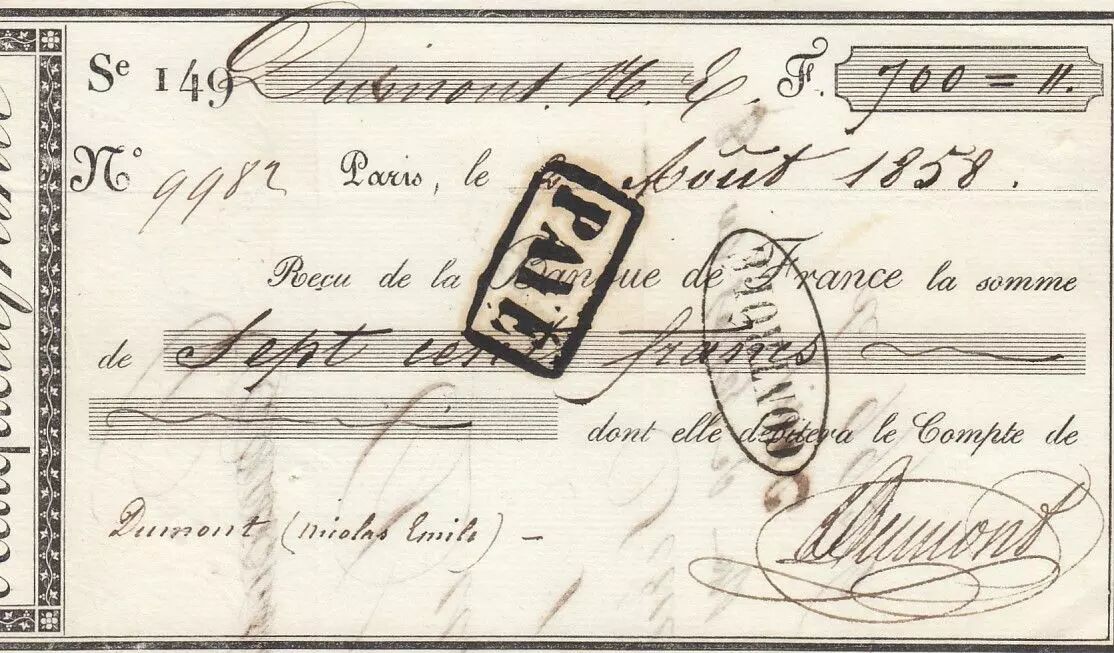 Se 149 Dumont. N. E. F. 700 = ".
No 9982 Paris, le 2 Août 1858.
PAIÉ
Reçu de la Banque de France la somme
de Sept cents francs
dont elle débitera le Compte de
Dumont (Nicolas Emile) -
EDumont